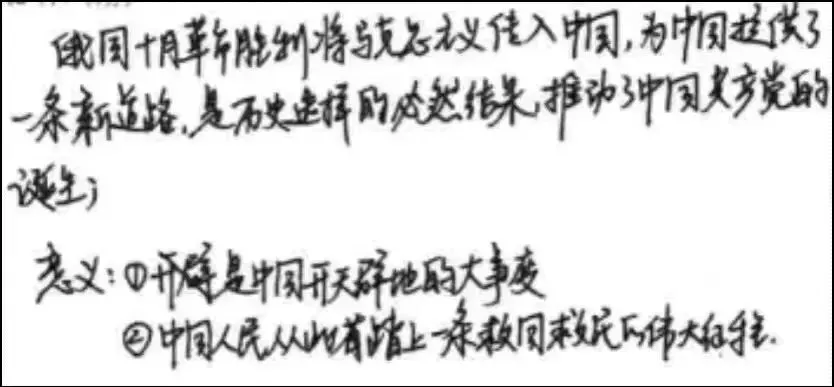 俄国十月革命胜利将马克思主义传入中国,为中国提供了
一条新道路,是历史选择的必然结果,推动了中国共产党的
诞生;
意义:①开辟是中国开天辟地的大事变
②中国人民从此踏上一条救国求民的伟大